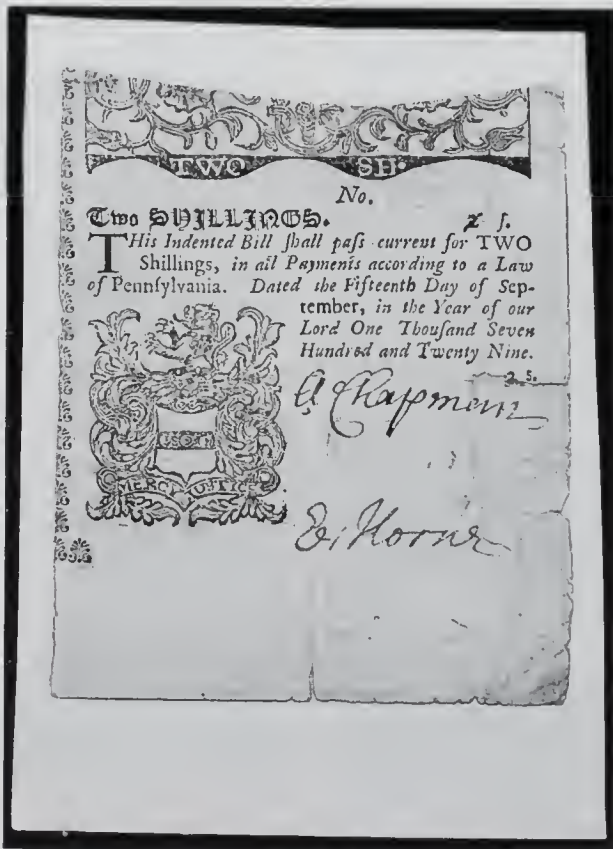 TWO SH.
No.
Two SHILLINGS. £ ſ.
THis Indented Bill ſhall paſs current for TWO
Shillings, in all Payments according to a Law
of Pennſylvania. Dated the Fifteenth Day of Sep-
tember, in the Year of our
Lord One Thouſand Seven
Hundred and Twenty Nine.
2 s.
A Chapman
MERCY JUSTICE
E. Horne